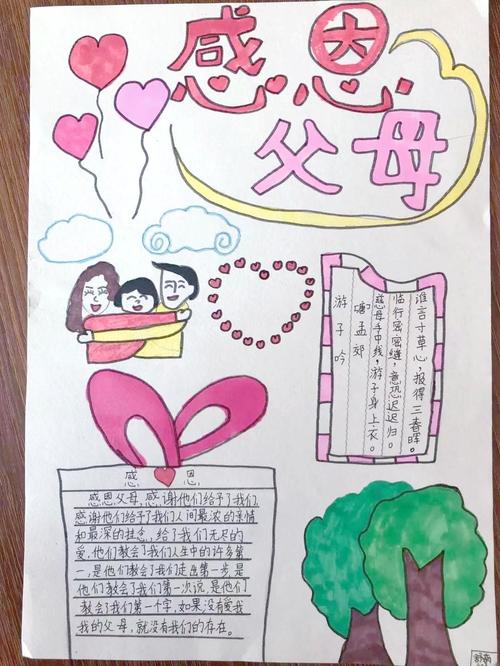 感恩
父母
游子吟
唐孟郊
慈母手中线,游子身上衣。
临行密密缝,意恐迟迟归。
谁言寸草心,报得三春晖。
感恩
感恩父母,感谢他们给予了我们,
感谢他们给予了我们人间最浓的亲情
和最深的挂念,给了我们无尽的
爱,他们教会了我们人生中的许多第
一,是他们教会了我们走出第一步,是
他们教会了我们第一次说,是他们
教会了我们第一个字,如果没有爱我
我的父母,就没有我们的存在。